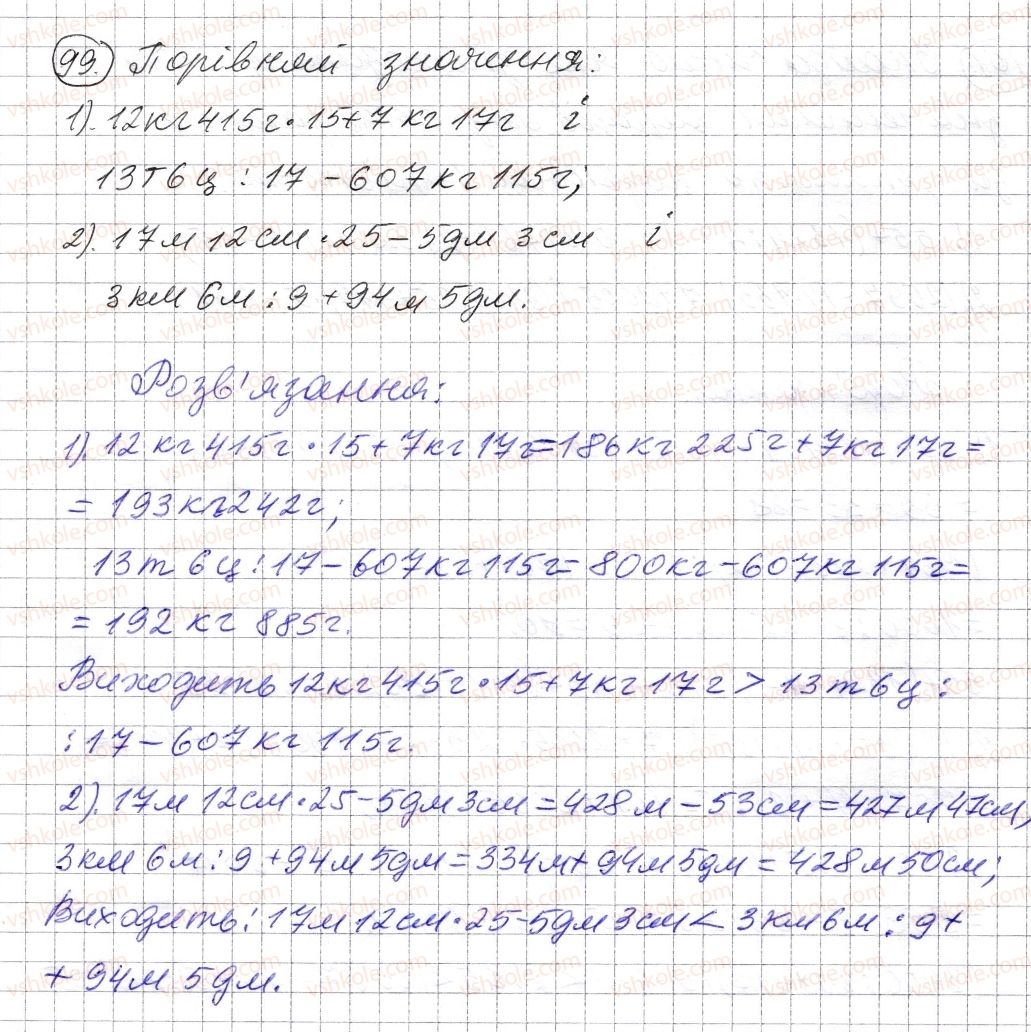 99. Порівняй значення:
1). 12кг 415г · 15 + 7 кг 17г і
13т 6ц : 17 - 607 кг 115г;
2). 17м 12см · 25 - 5дм 3см і
3км 6м : 9 + 94м 5дм.
Розв'язання:
1). 12 кг 415г · 15 + 7кг 17г = 186кг 225г + 7кг 17г =
= 193кг 242г;
13т 6ц : 17 - 607кг 115г = 800кг - 607кг 115г =
= 192 кг 885г.
Виходить 12кг 415г · 15 + 7кг 17г > 13т 6ц :
: 17 - 607 кг 115г.
2). 17м 12см · 25 - 5дм 3см = 428м - 53см = 427м 47см,
3км 6м : 9 + 94м 5дм = 334м + 94м 5дм = 428м 50см;
Виходить: 17м 12см · 25 - 5дм 3см < 3км 6м : 9 +
+ 94м 5дм.
vshkole.com